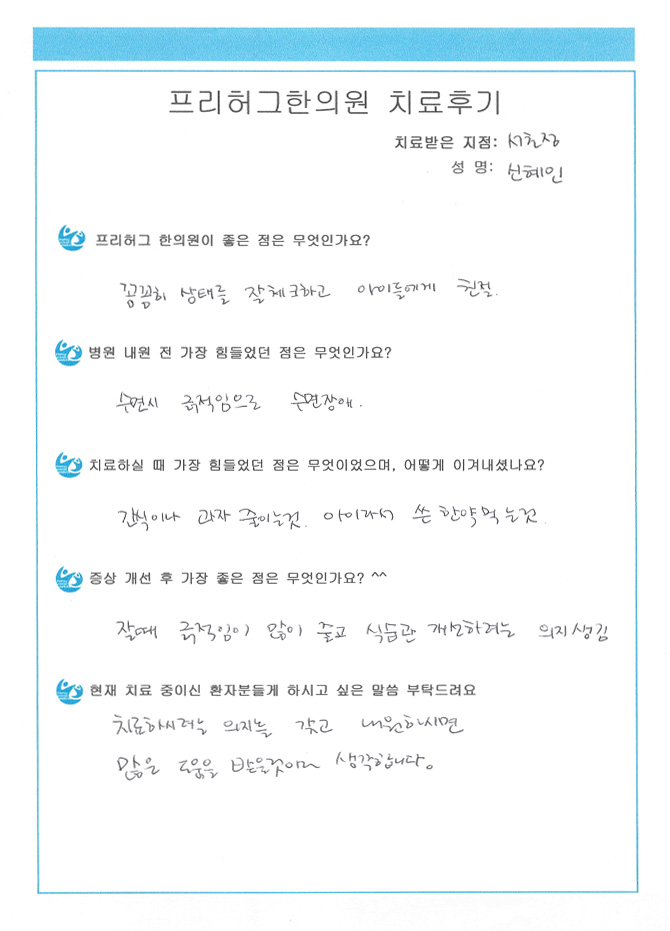 프리허그한의원 치료후기
치료받은 지점: 서초점
성 명: 신혜인
프리허그 한의원이 좋은 점은 무엇인가요?
꼼꼼히 상태를 잘체크하고 아이들에게 친절.
병원 내원 전 가장 힘들었던 점은 무엇인가요?
수면시 긁적임으로 수면장애.
치료하실 때 가장 힘들었던 점은 무엇이었으며, 어떻게 이겨내셨나요?
간식이나 과자 줄이는것. 아이라서 쓴 한약먹는것.
증상 개선 후 가장 좋은 점은 무엇인가요? ^^
잘때 긁적임이 많이 줄고 식습관 개선하려는 의지생김
현재 치료 중이신 환자분들게 하시고 싶은 말씀 부탁드려요
치료하시려는 의지를 갖고 내원하시면
많은 도움을 받을것이라 생각합니다.